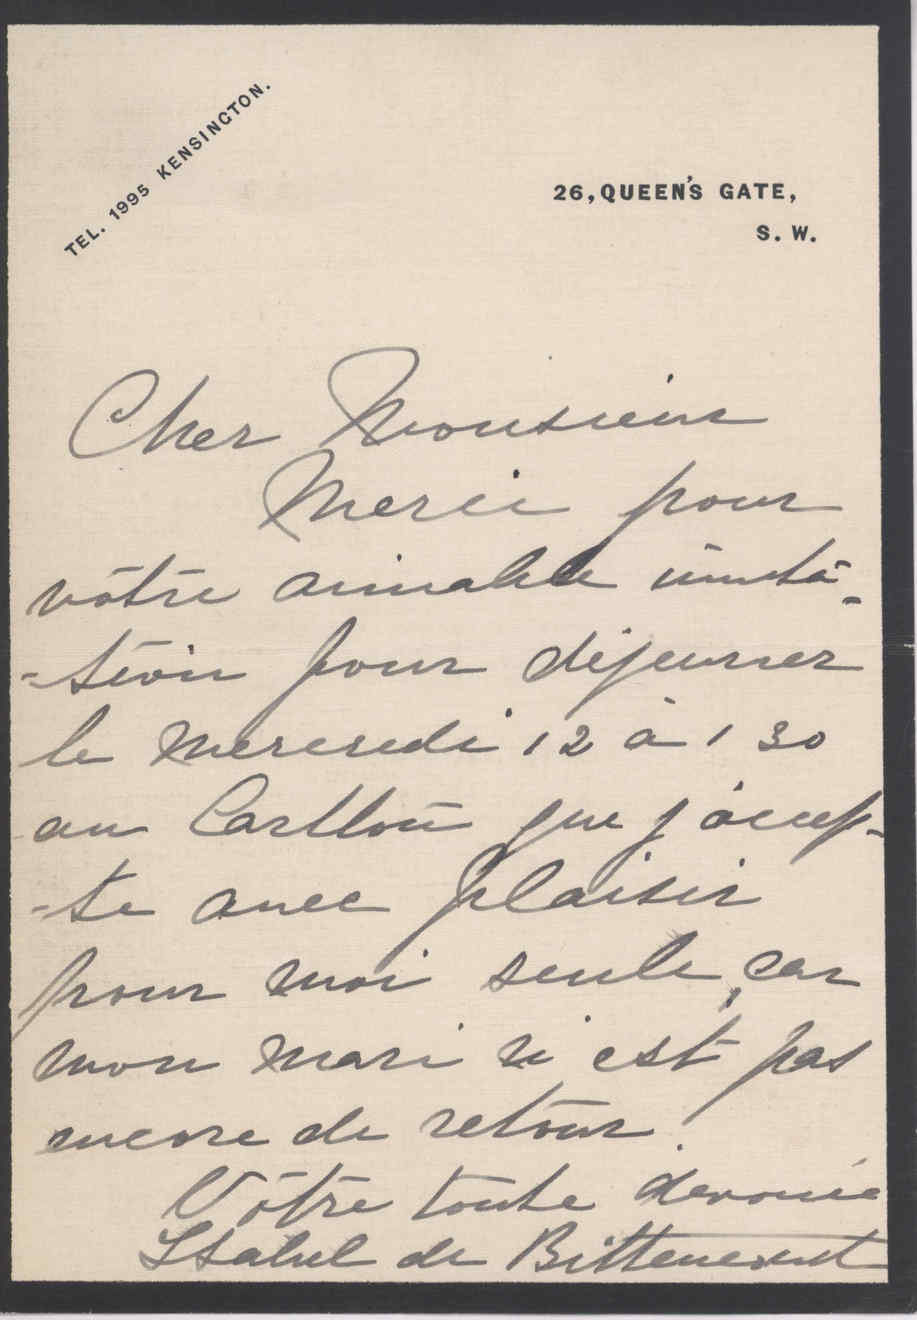 TEL. 1995 KENSINGTON.
26, QUEEN'S GATE,
S. W.
Cher Monsieur
Merci pour
vôtre aimable invita-
-tion pour déjeuner
le Mercredi 12 à 1 30
au Carlton que j'accep-
-te avec plaisir
pour moi seule, car
mon mari n'est pas
encore de retour.
Vôtre toute dévouée
Isabel de Bittencourt